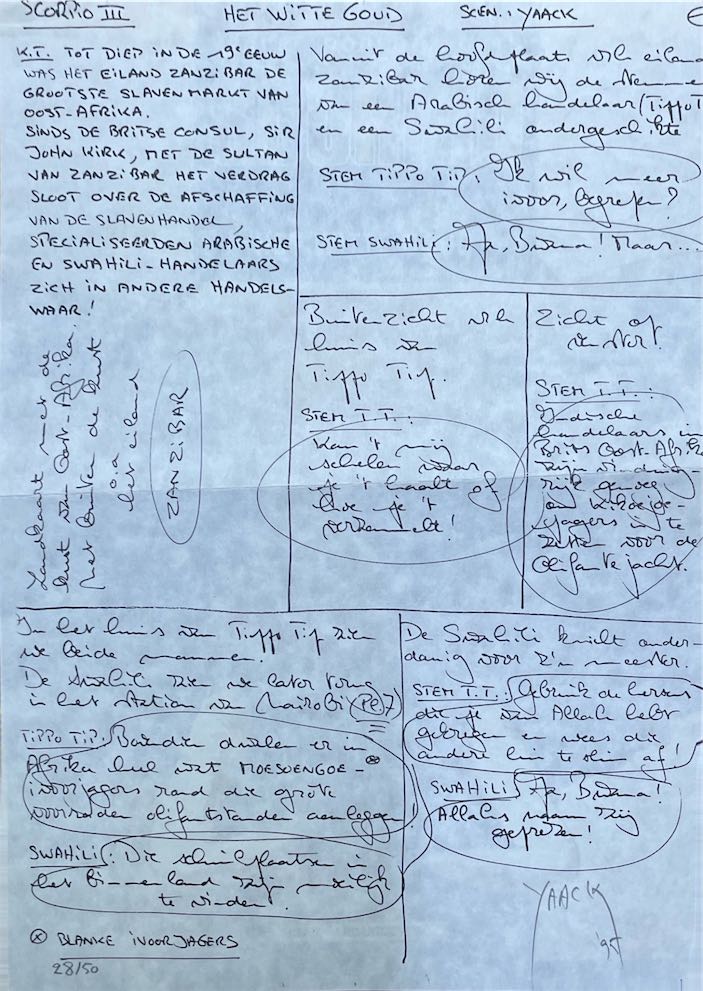 SCORPIO III HET WITTE GOUD SCEN.: YAACK
K.T. TOT DIEP IN DE 19e EEUW
WAS HET EILAND ZANZIBAR DE
GROOTSTE SLAVENMARKT VAN
OOST-AFRIKA.
SINDS DE BRITSE CONSUL, SIR
JOHN KIRK, MET DE SULTAN
VAN ZANZIBAR HET VERDRAG
SLOOT OVER DE AFSCHAFFING
VAN DE SLAVENHANDEL,
SPECIALISEERDEN ARABISCHE
EN SWAHILI-HANDELAARS
ZICH IN ANDERE HANDELS-
WAAR!
Landkaart met de
kust van Oost-Afrika.
Met buiten de kust
o.a
het eiland
ZANZIBAR
Vanuit de hoofdplaats v/h eiland
Zanzibar horen wij de stemmen
van een Arabisch handelaar (Tippo T
en een Swahili ondergeschikte
STEM TIPPO TIP: Ik wil meer
ivoor, begrepen?
STEM SWAHILI: Ja, Bwana! Maar...
Buitenzicht v/h
huis van
Tippo Tip.
STEM T.T.:
Kan 't mij
schelen waar
je 't haalt of
hoe je 't
verzamelt!
Zicht op
venster!
STEM T.T.:
Indische
handelaars in
Brits Oost-Afrik
zijn vinding-
rijk genoeg
om Kikoeje-
jagers in te
zetten voor de
olifantejacht.
In het huis van Tippo Tip zien
we beide mannen!
De Swahili zien we later terug
in het station van Nairobi (Pl 7)
TIPPO TIP: Bovendien dwalen er in
Afrika heel wat MOESOENGOE-⊗
ivoorjagers rond die grote
voorraden olifantstanden aanleggen!
SWAHILI: Die schuilplaatsen in
het binnenland zijn moeilijk
te vinden!
⊗ BLANKE IVOORJAGERS
28/50
De Swahili knielt onder-
danig voor z'n meester.
STEM T.T.: Gebruik de hersens
die je van Allah hebt
gekregen en wees die
andere hun te slim af!
SWAHILI: Ja, Bwana!
Allahs naam zij
geprezen!
YAACK
'95